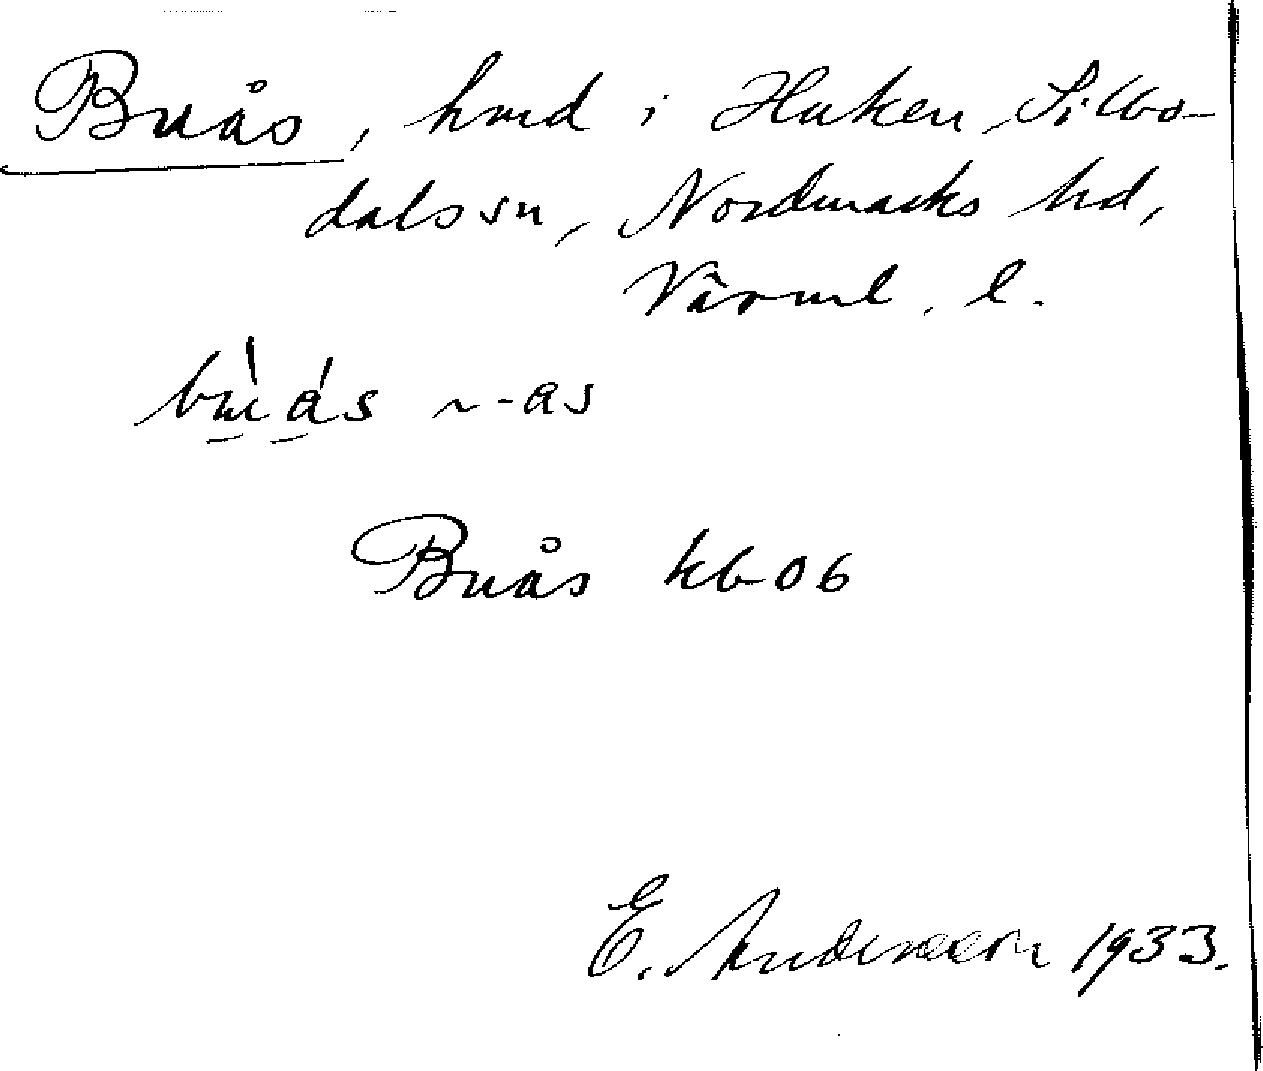 Buås, hmd i Haken, Silbo-
dals sn, Nordmarks hd,
Värml. l.
bù̱á̱s ~-as
Buås kb 06
E. Andersson 1933.